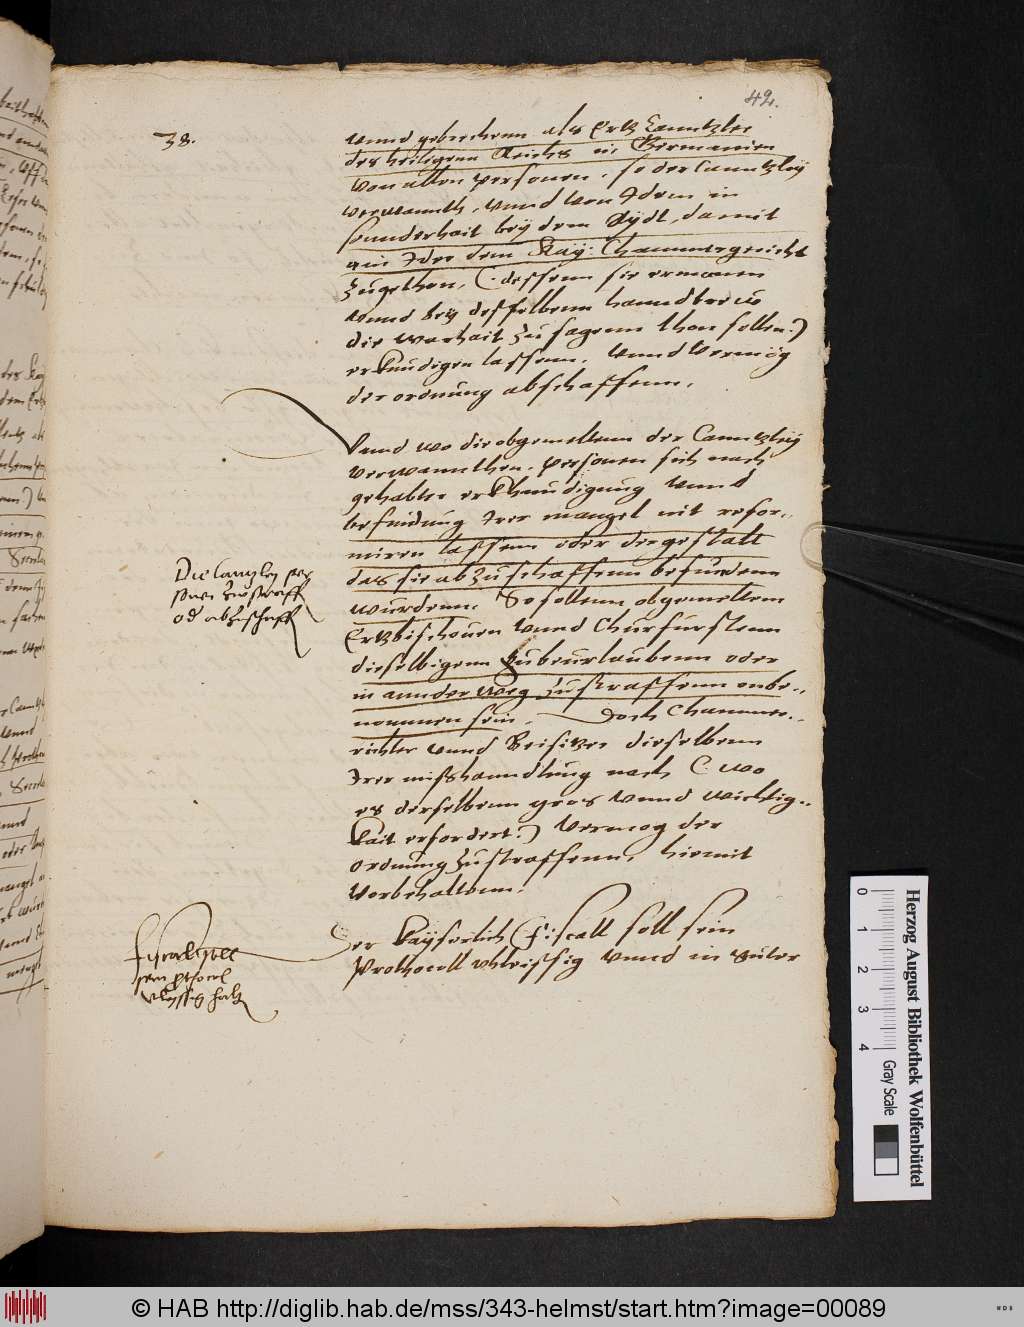 42.
38.
vnnd gebrechenn als Ertz Canntzler
des heiligenn Reichs in Germanien
von allen personen, so der Canntzley
verwannth, vnnd von Jdem in
sonnderhait bey dem Aydt, damit
ain Jder dem Kay: Chammergericht
zugethon, (dessenn sie ermanen
vnnd bey desselbenn hanndtreu
die warhait zusagenn thon sollen)
erkundigen lassenn, vnnd vermög
der ordnung abschaffenn.
Vnnd wo die obgemeltenn der Canntzley
verwannthen, personen sich nach
gehabter erkhundigung vnnd
befindung Jrer mangel nit refor-
miren lassenn oder dergestalt
das sie abzuschaffenn befundenn
würdenn, So sollenn obgemeltem
Ertzbischouen vnnd Churfürstenn
dieselbigenn zubeurlaubenn oder
in annder weg zustraffenn onbe-
nommen sein, Doch Chammer-
richter vnnd Beisitzer dieselbenn
Jrer mißhanndlung nach (wo
es derselbenn gros vnnd wichtig-
kait erfordert) vermog der
ordnung zustraffenn, hiemit
vorbehaltenn.
Die Canzley per
sonen zustraff
od abzuschaff
Der Kayserlich Fiscall soll sein
Prothocoll vleissig vnnd in guter
Fiscal soll
sein prthocol
vleyssig halt
Herzog August Bibliothek Wolfenbüttel
0 1 2 3 4
Gray Scale
© HAB http://diglib.hab.de/mss/343-helmst/start.htm?image=00089
WDB